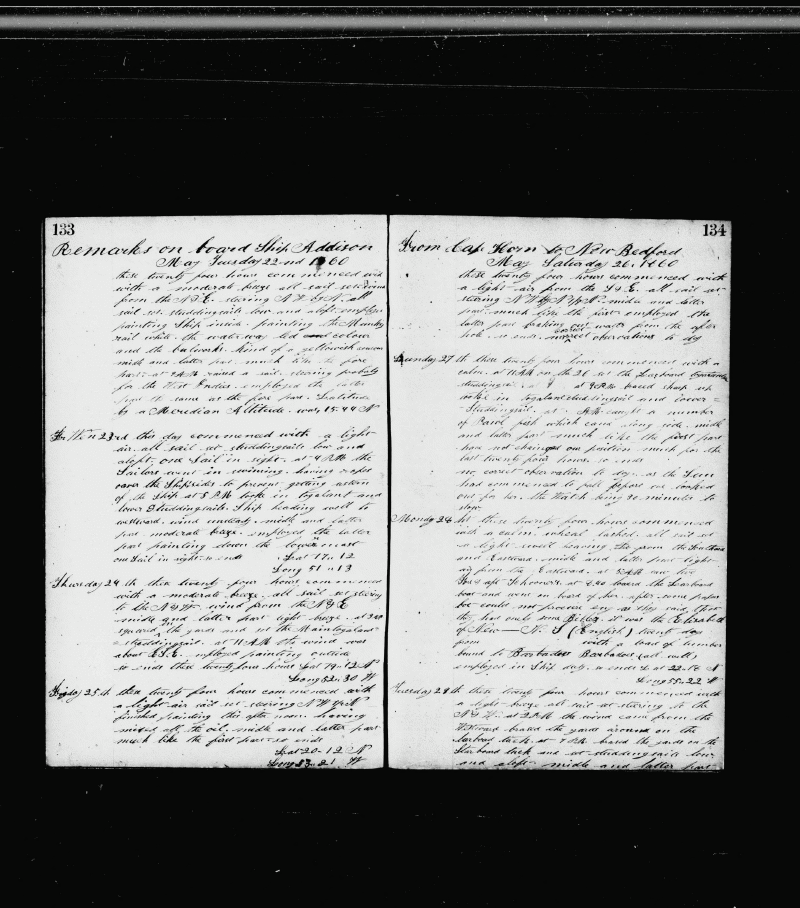 133
Remarks on board Ship Addison
May Tuesday 22nd 1860
these twenty four hours commenced with
with a moderate breeze all sail set wind
from the S.E. steering N W by N. all
sail set studdingsails low and aloft. employed
painting Ship inside. painting the Monkey
rail white. the water way led colour
and the bulworks kind of a yellowish
midle and latter part much like the fore
part. at raised a sail. steering probably
for the West Indies. employed the latter
part the same as the fore part. Latitude
by a Meredian Altitude. was 15.44 N
23rd this day commenced with a light
air. all sail set studdingsails low and
aloft. one sail in sight. at 4 P.M. the
Sailors went in swiming. having ropes
over the Shipsides to prevent getting astern
of the Ship at 5 P.M. took in togalant and
lower Studdingsails. Ship heading well to
westward. wind unsteady. midle and latter
part moderate breeze. employed the latter
part painting down the lower mast
one Sail in sight. so ends Lat 17.. 12
Long 51.. 13
Thursday 24th these twenty four hours commenced
with a moderate breeze. all sail set steering
to the N W. wind from the
midle and latter part light breeze. at
squared the yards and set the Maintogalant
Studdingsail. at 11 A.M. the wind was
about E.S.E. employed painting outside
so ends these twenty four hours Lat 19..12 N
Long 52..30 W
Friday 25th these twenty four hours commenced with
a light air sail set steering N W by N
finished painting this after noon. having
mixed all the oil. midle and latter part
much like the first part. so ends
Lat 20..12 N
Long 53..21 W
134
From Cape Horn to New Bedford
May Saturday 26. 1860
these twenty four hours commenced with
a light air from the S.E. all sail set
steering N W by N. midle and latter
part much like the first employed the
latter part breaking out water from the after
hole. so ends correct observations to day
Sunday 27th these twenty four hours commenced with a
calm. at 11 A.M. on the 26 set the Larboard
studdingsails at at 9 P.M. braced sharp up
took in togalantstuddingsail and lower
Studdingsail. at A.M. caught a number
of fish which came along side. midle
and latter part much like the first part
have not changed our position much for the
last twenty four hours. so ends
no correct observation to day. as the Sun
had commenced to fall before we looked
out for her. the Watch being 20 minutes to
slow
Monday 28th these twenty four hours commenced
with a calm. wheel lashed. all sail set
a light swell heaving from the Southard
and Eastward. midle and latter part light
air from the Eastward. at 5 A.M. saw two
fore & aft Schooners. at lowered the Larboard
boat and went on board of her. after some papers
but could not procure any as they said
they had onely some Bibles. it was the Elizabeth
of New — N. S (English) twenty days
from with a load of lumber
bound to Barbadoes Barbadoes (all well)
employed in Ship duty. so ends Lat 22..18 N
Long 55..22 W
Tuesday 29th these twenty four hours commenced with
a light breeze all sail set steering to the
N W. at 2 P.M. the wind came from the
Westward braced the yards around on the
larboard tack. at 7 P.M. braced the yards on the
Starboard tack and set studdingsails low
and aloft. midle and latter part